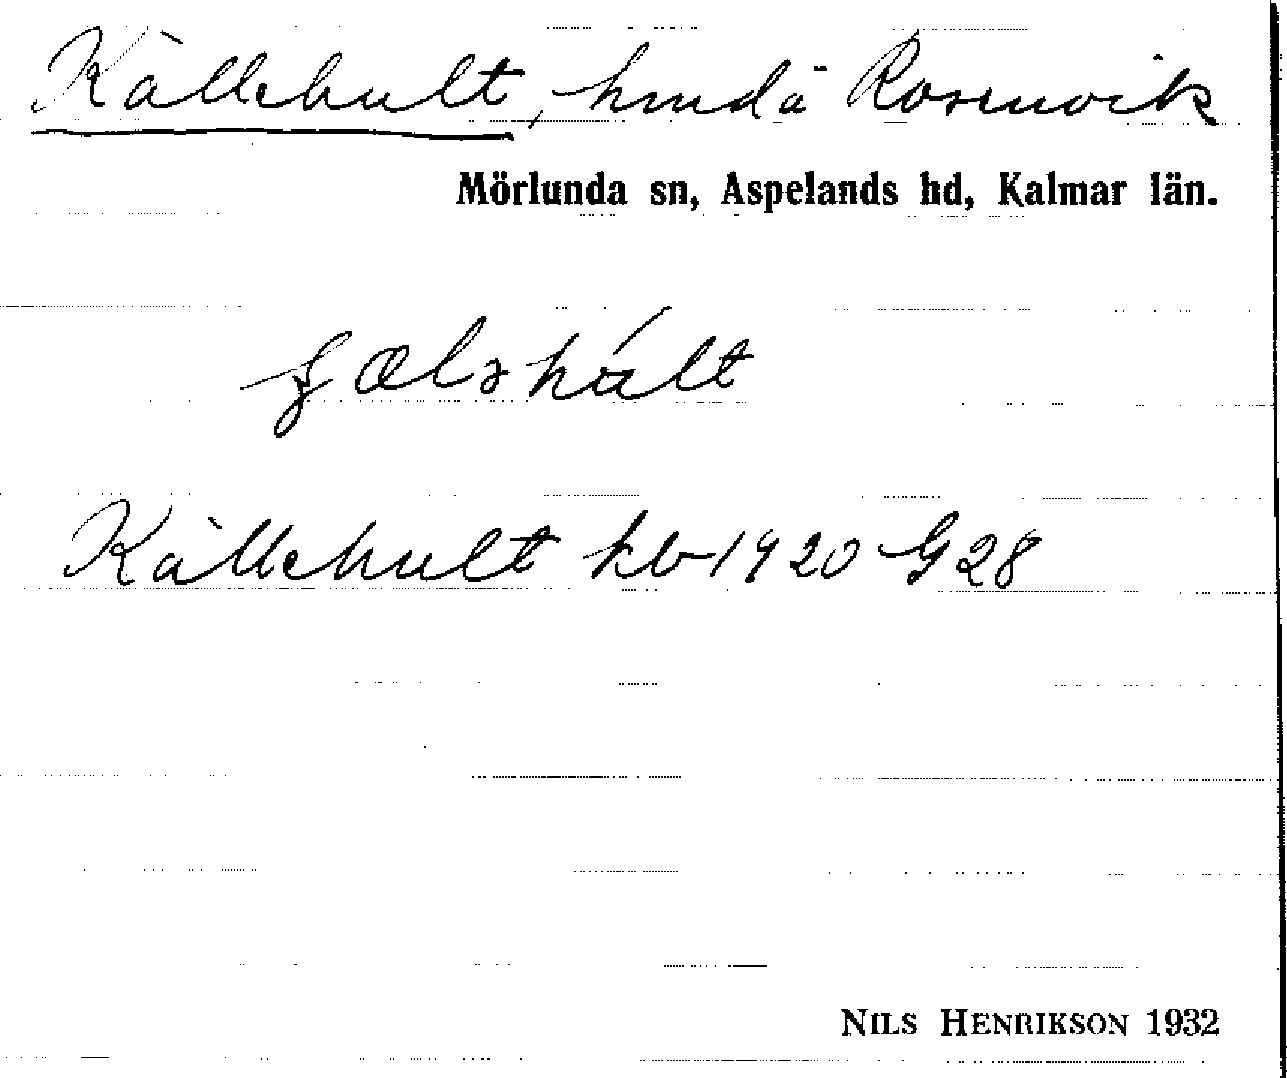 Källehult, hmd å Rosenvik
Mörlunda sn, Aspelands hd, Kalmar län.
Källehult kb 1920 G 28
NILS HENRIKSON 1932